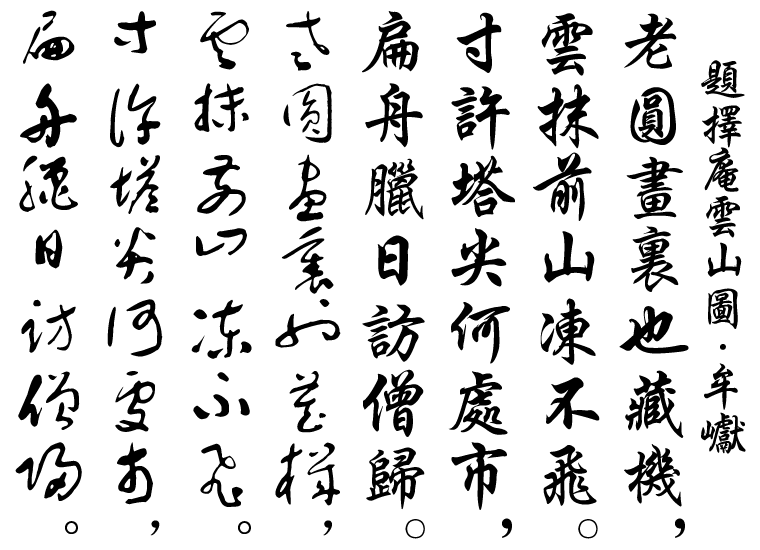 題擇庵雲山圖·牟巘
老圓畫裏也藏機，
雲抹前山凍不飛。
寸許塔尖何處市，
扁舟臘日訪僧歸。
老圓畫裏也藏機，
雲抹前山凍不飛。
寸許塔尖何處市，
扁舟臘日訪僧歸。